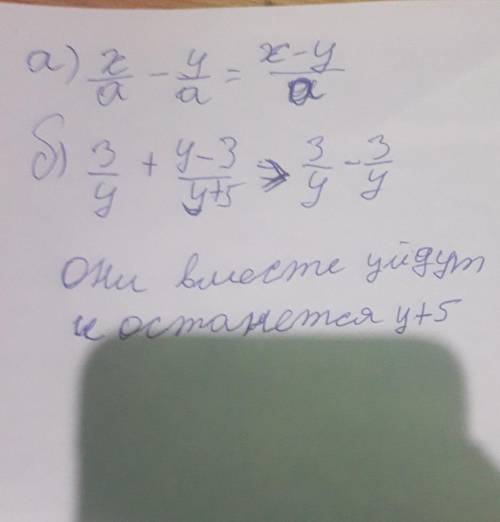 а) x/a - y/a = x-y/a
б) 3/y + y-3/y+5 => 3/y - 3/y
Они вместе уйдут
и останется y+5